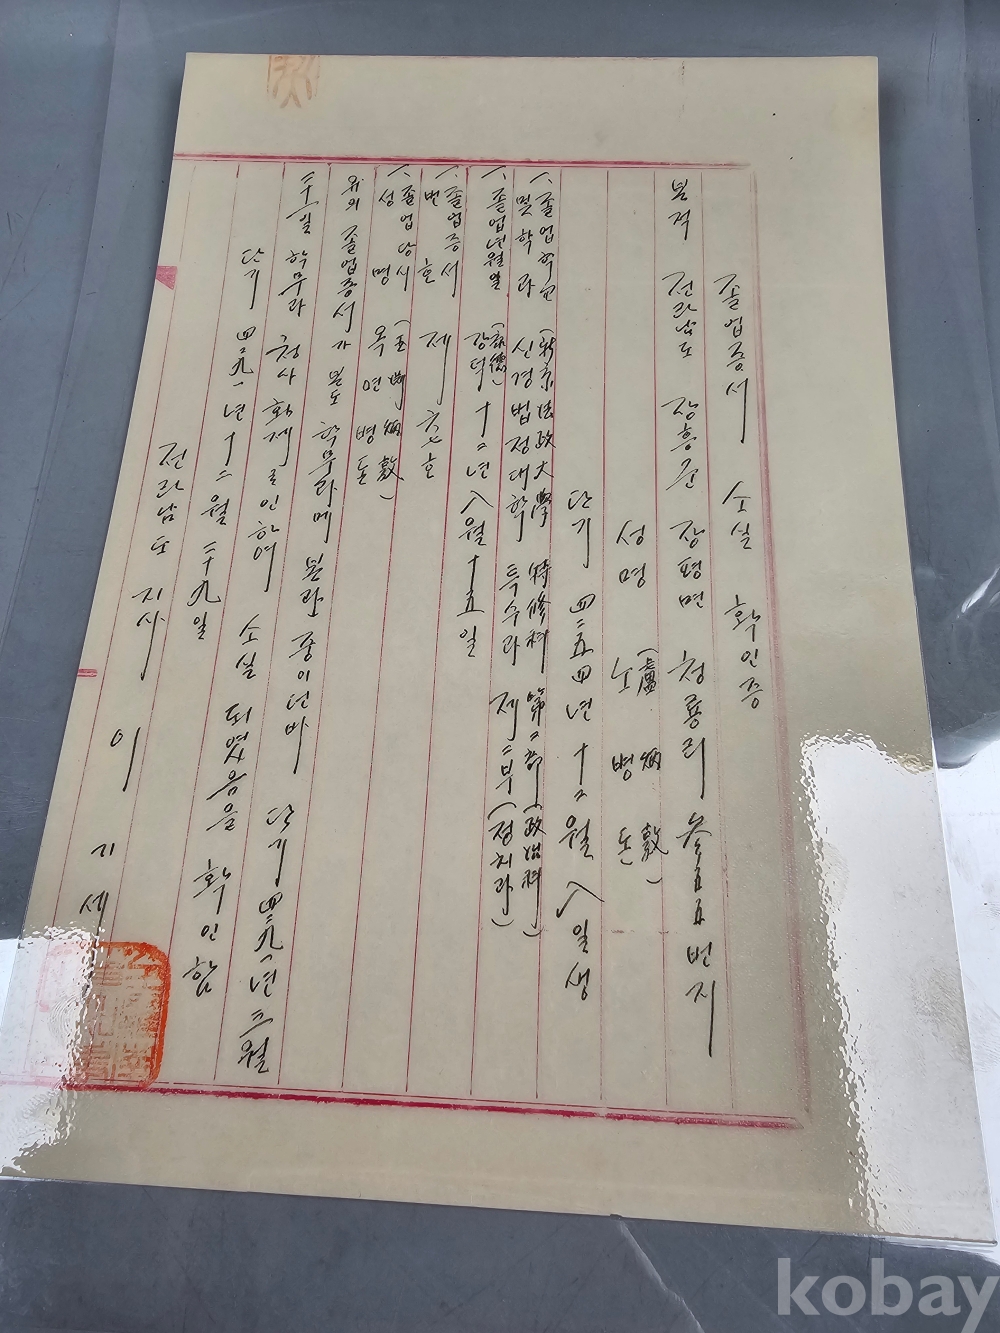 졸업증서 소실 확인증
본적 전라남도 장흥군 장평면 청룡리 参五五번지
성명 노병돈
(盧炳敦)
단기 四二五四년 十二월 八일생
一、졸업학교 (新京法政大學 特修科 第二部 (政治科)
및 학과 신경법정대학 특수과 제二부 (정치과)
一、졸업년월일 (康德) 강덕 十二년 八월 十五일
一、졸업증서
번호 제 호
一、졸업당시 (玉 炳敦)
성명 옥 병돈
위의 졸업증서가 본도 학무과에 보관 중이던바 단기 四二九一년 二월
二十一일 학무과 청사 화재로 인하여 소실 되였음을 확인함
단기 四二九一년 十二월 二十九일
전라남도 지사 이 기세
kobay